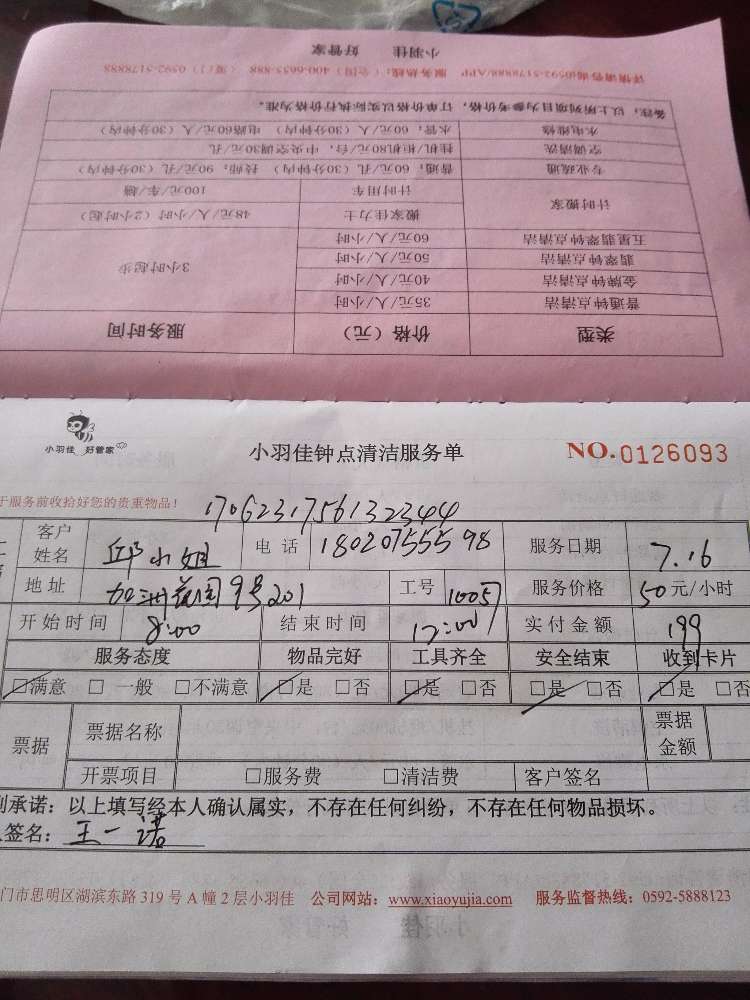 小羽佳 好管家
详情请咨询0592-5178888/APP 服务热线：（全国）400-6655-888 （厦门）0592-5178888
备注：以上所列项目为参考价格，订单价格以实际执行价格为准。
水电维修 水管：60元/人（30分钟内） 电路60元/人（30分钟内）
空调清洗 挂机/柜机80元/台，中央空调30元/孔
专业疏通 普通：60元/孔（30分钟内） 技师：90元/孔（30分钟内）
计时搬家 计时用车 100元/车/趟
搬家佳力士 48元/人/小时（2小时起）
五星翡翠钟点清洁 60元/人/小时 3小时起步
翡翠钟点清洁 50元/人/小时
金牌钟点清洁 40元/人/小时
普通钟点清洁 35元/人/小时
类型 价格（元） 服务时间
小羽佳 好管家
小羽佳钟点清洁服务单
NO.0126093
于服务前收拾好您的贵重物品！
17062317561322344
客户姓名 邱小姐 电话 18020755598 服务日期 7.16
地址 加洲花园9号201 工号 1005 服务价格 50元/小时
开始时间 8:00 结束时间 12:00 实付金额 199
服务态度 物品完好 工具齐全 安全结束 收到卡片
☑满意 □一般 □不满意 ☑是 □否 ☑是 □否 ☑是 □否 ☑是 □否
票据 票据名称 票据金额
开票项目 □服务费 □清洁费 客户签名
承诺：以上填写经本人确认属实，不存在任何纠纷，不存在任何物品损坏。
签名：王一诺
门市思明区湖滨东路 319 号 A 幢 2 层小羽佳 公司网站：www.xiaoyujia.com 服务监督热线：0592-5888123